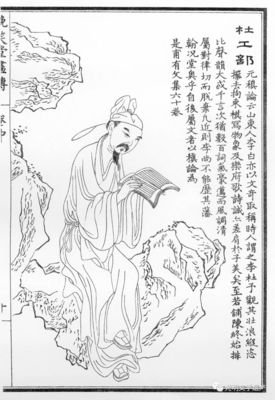 杜工部
元稹論云山東人李白亦以文奇取稱時人謂之李杜予觀其壮浪縱恣
擺去拘束模寫物象及樂府歌詩誠亦差肩於子美矣至若鋪陳終始排
比聲韻大或千言次猶數百詞氣豪邁而風調清
屬對律切而脫棄凡近則李尚不能歷其藩
翰况堂奧乎自後屬文者以稹論為
是甫有文集六十卷
晚笑堂畫傳